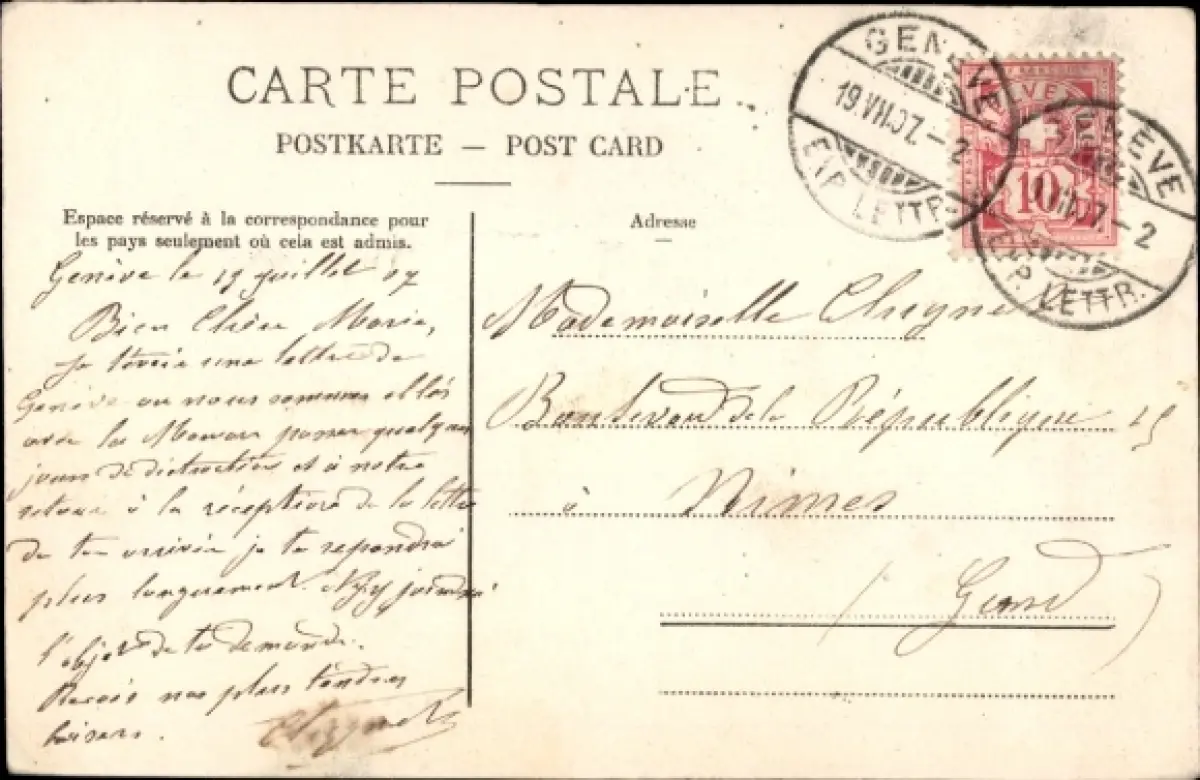 CARTE POSTALE
POSTKARTE — POST CARD
Espace réservé à la correspondance pour
les pays seulement où cela est admis.
Adresse
GENÈVE
19.VII.07.–2
EXP. LETTR.
HELVETIA
10
GENÈVE
VII.07.–2
EXP. LETTR.
Genève le 19 juillet 07
Bien Chère Marie,
Je t'envoie une lettre de
Genève ou nous sommes allés
avec la Maman passer quelques
jours de distraction et à notre
retour à la réception de la lettre
de ton arrivée je te repondrai
plus longuement. j'y joindrai
l'objet de ta demande.
Reçois nos plus tendres
baisers.
Mademoiselle
Boulevard de la République 15
à Nimes
(Gard)